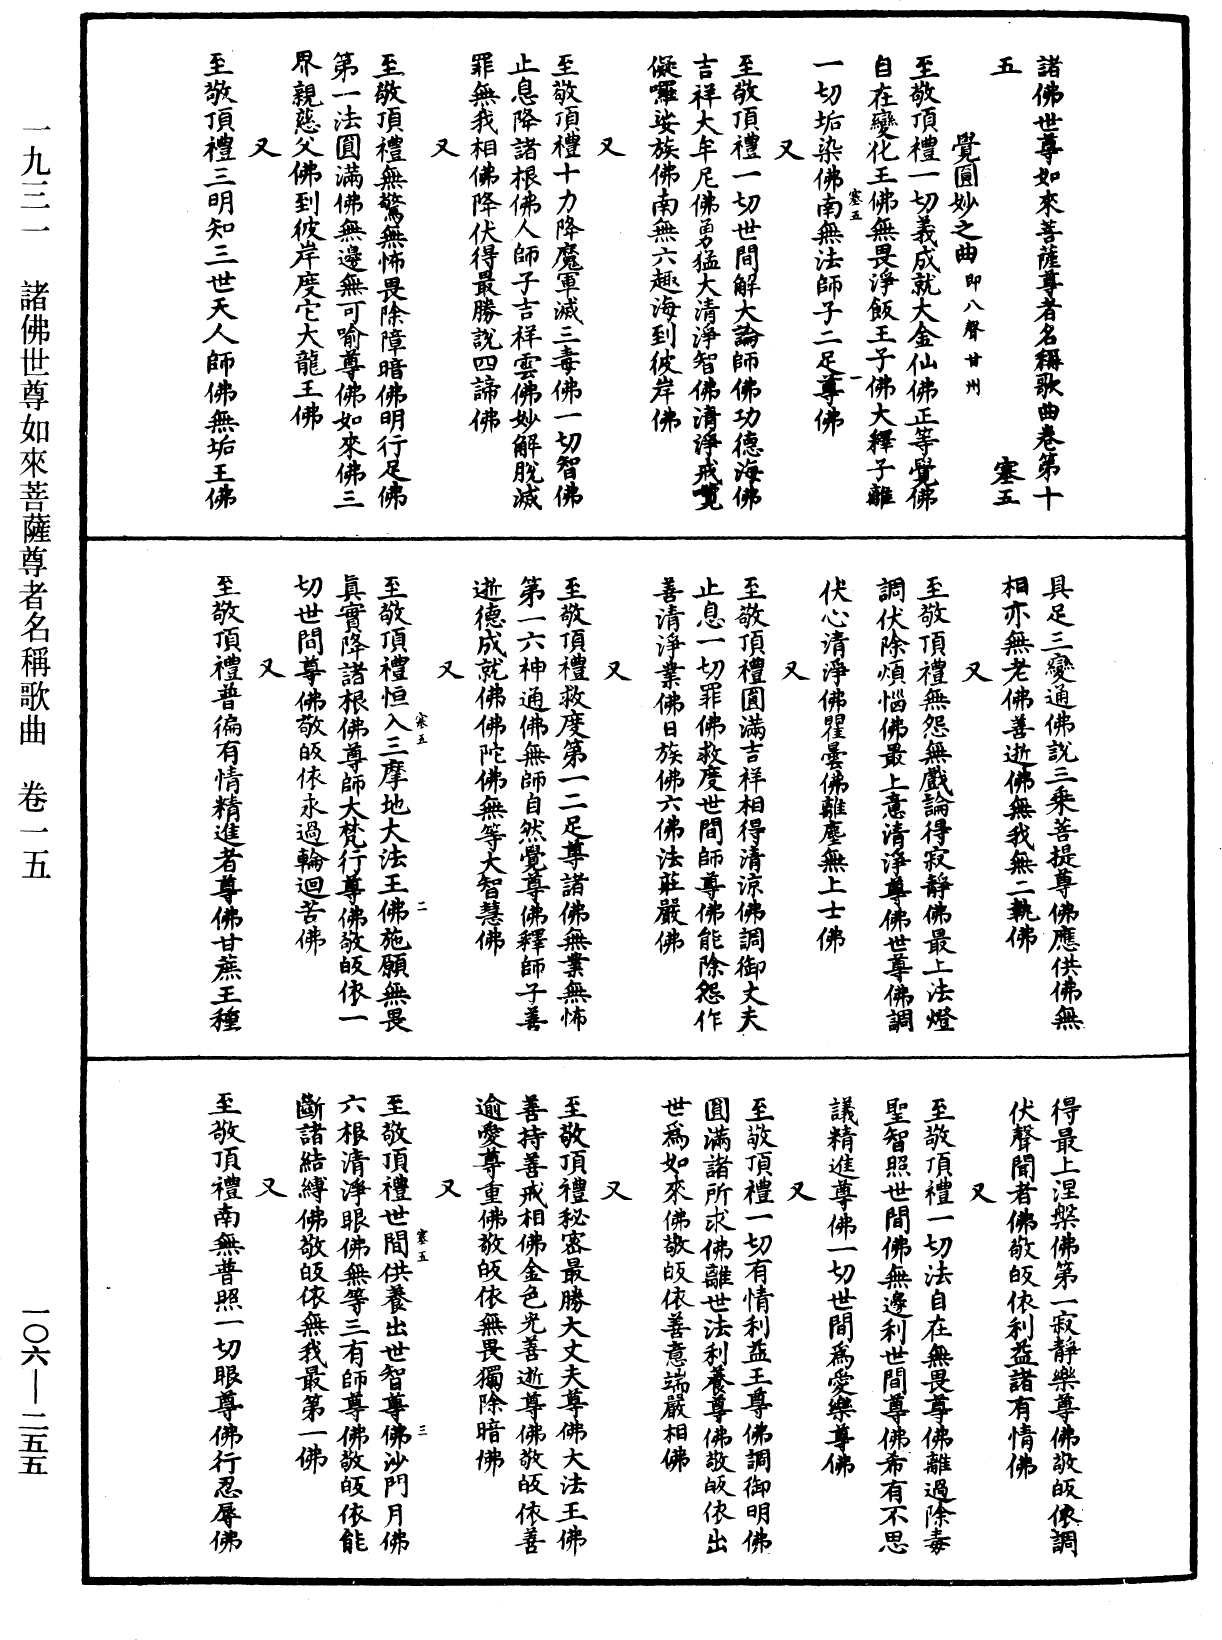 諸佛世尊如來菩薩尊者名稱歌曲卷第十
五　塞五
覺圓妙之曲 即八聲甘州
至敬頂禮一切義成就大金仙佛正等覺佛
自在變化王佛無畏淨飯王子佛大釋子離
塞五　一
一切垢染佛南無法師子二足尊佛
又
至敬頂禮一切世間解大論師佛功德海佛
吉祥大牟尼佛勇猛大清淨智佛清淨戒覺
儗囉娑族佛南無六趣海到彼岸佛
又
至敬頂禮十力降魔軍滅三毒佛一切智佛
止息降諸根佛人師子吉祥雲佛妙解脫滅
罪無我相佛降伏得最勝說四諦佛
又
至敬頂禮無驚無怖畏除障暗佛明行足佛
第一法圓滿佛無邊無可喻尊佛如來佛三
界親慈父佛到彼岸度它大龍王佛
又
至敬頂禮三明知三世天人師佛無垢王佛
具足三變通佛說三乘菩提尊佛應供佛無
相亦無老佛善逝佛無我無二執佛
又
至敬頂禮無怨無戲論得寂靜佛最上法燈
調伏除煩惱佛最上意清淨尊佛世尊佛調
伏心清淨佛瞿曇佛離塵無上士佛
又
至敬頂禮圓滿吉祥相得清涼佛調御丈夫
止息一切罪佛救度世間師尊佛能除怨作
善清淨業佛日族佛六佛法莊嚴佛
又
至敬頂禮救度第一二足尊諸佛無業無怖
第一六神通佛無師自然覺尊佛釋師子善
逝德成就佛佛陀佛無等大智慧佛
又
塞五　二
至敬頂禮恒入三摩地大法王佛施願無畏
真實降諸根佛尊師大梵行尊佛敬皈依一
切世間尊佛敬皈依永過輪迴苦佛
又
至敬頂禮普徧有情精進者尊佛甘蔗王種
得最上涅槃佛第一寂靜樂尊佛敬皈依調
伏聲聞者佛敬皈依利益諸有情佛
又
至敬頂禮一切法自在無畏尊佛離過除毒
聖智照世間佛無邊利世間尊佛希有不思
議精進尊佛一切世間為愛樂尊佛
又
至敬頂禮一切有情利益王尊佛調御明佛
圓滿諸所求佛離世法利養尊佛敬皈依出
世為如來佛敬皈依善意端嚴相佛
又
至敬頂禮秘密最勝大丈夫尊佛大法王佛
善持善戒相佛金色光善逝尊佛敬皈依善
逾愛尊重佛敬皈依無畏獨除暗佛
又
塞五　三
至敬頂禮世間供養出世智尊佛沙門月佛
六根清淨眼佛無等三有師尊佛敬皈依能
斷諸結縛佛敬皈依無我最第一佛
又
至敬頂禮南無普照一切眼尊佛行忍辱佛
一九三一　諸佛世尊如來菩薩尊者名稱歌曲　卷一五
一〇六—二五五